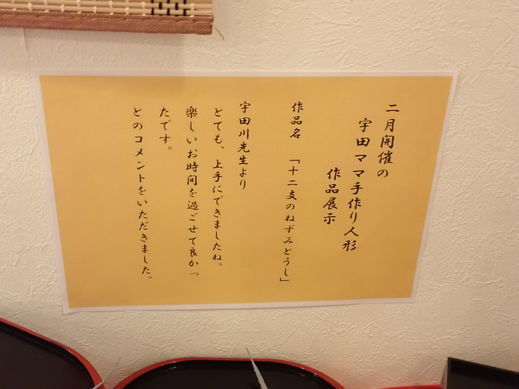 二月開催の
宇田ママ手作り人形
作品展示
作品名　「十二支のねずみどうし」
宇田川先生より
とても、上手にできましたね。
楽しいお時間を過ごせて良かっ
たです。
とのコメントをいただきました。